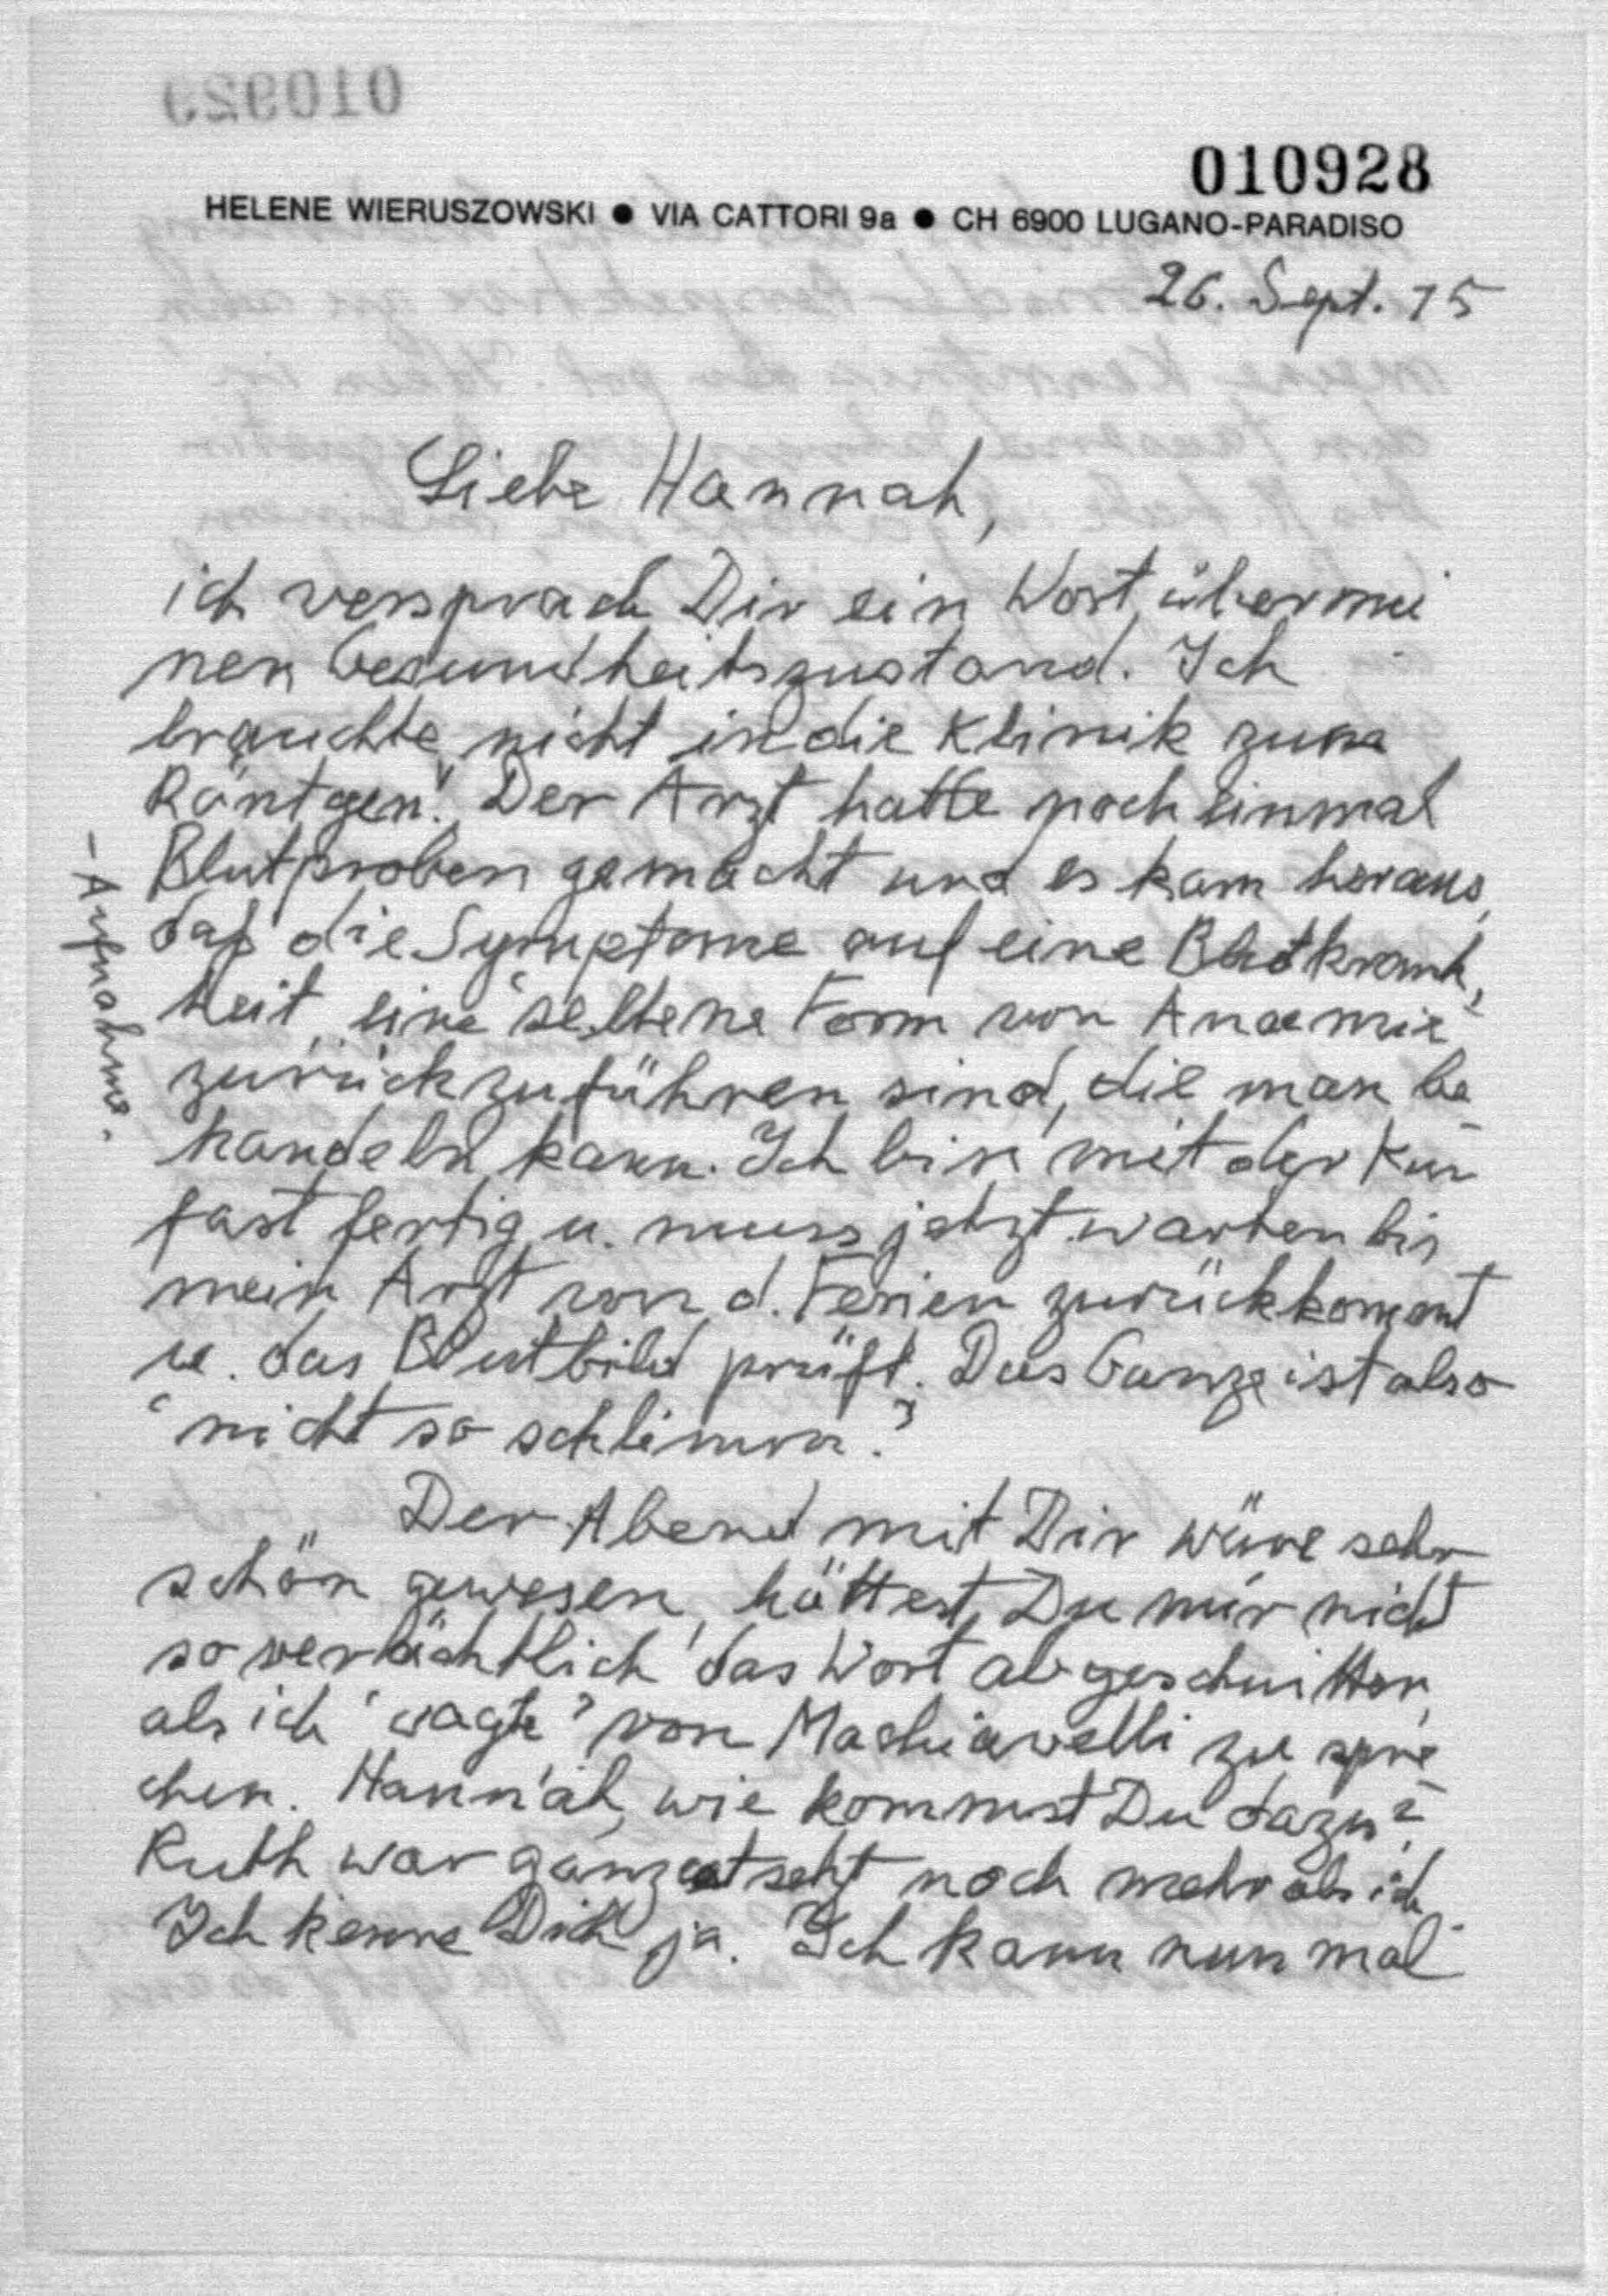 010929
010928
HELENE WIERUSZOWSKI ● VIA CATTORI 9a ● CH 6900 LUGANO-PARADISO
26. Sept. 75
Liebe Hannah,
ich versprach Dir ein Wort über mei
nen Gesundheitszustand. Ich
brauchte nicht in die Klinik zum
Röntgen. Der Arzt hatte noch einmal
Blutproben gemacht und es kam heraus,
daß die Symptome auf eine Blutkrank,
heit, eine seltene Form von Anaemie
zurückzuführen sind, die man be
handeln kann. Ich bin mit der Kur
fast fertig u. muss jetzt warten bis
mein Arzt von d. Ferien zurückkommt
u. das Blutbild prüft. Das Ganze ist also
'nicht so schlimm.'
Der Abend mit Dir wäre sehr
schön gewesen, hättest Du mir nicht
so verächtlich das Wort abgeschnitten,
als ich 'wagte' von Machiavelli zu spre
chen. Hannah, wie kommst Du dazu?
Ruth war ganz entsetzt noch mehr als ich
Ich kenne Dich ja. Ich kann nun mal
- Aufnahme.